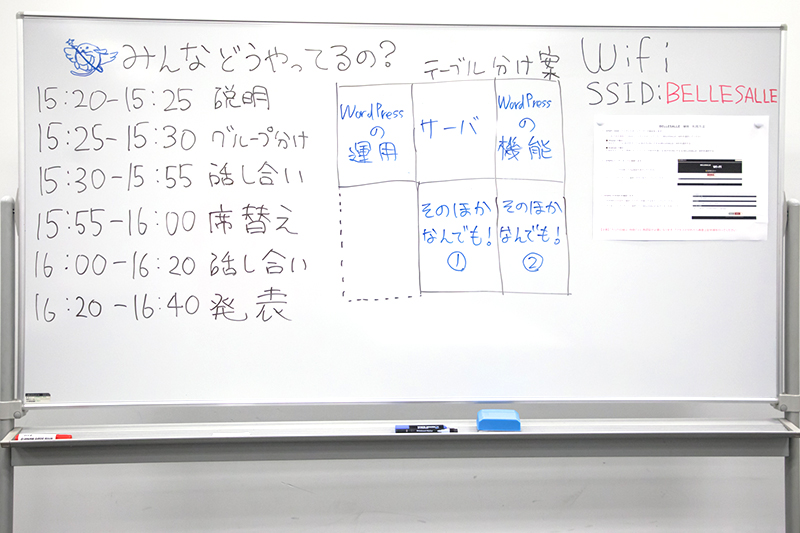 みんなどうやってるの?
15:20-15:25 説明
15:25-15:30 グループ分け
15:30-15:55 話し合い
15:55-16:00 席替え
16:00-16:20 話し合い
16:20-16:40 発表
テーブル分け案
WordPress
の
運用
サーバ
WordPress
の
機能
そのほか
なんでも!
①
そのほか
なんでも!
②
Wifi
SSID:BELLESALLE